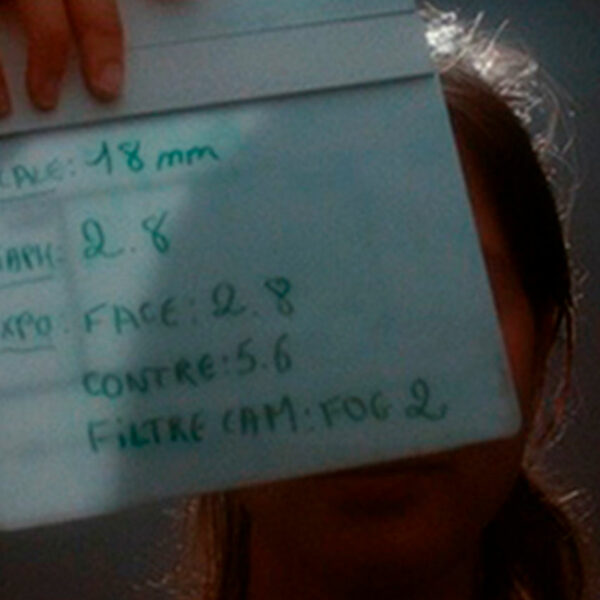 CALE: 18 mm
APH: 2.8
XPO: FACE: 2.8
CONTRE: 5.6
FILTRE CAM: FOG 2